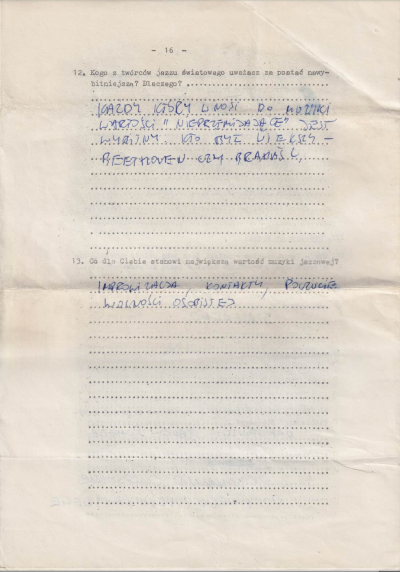 - 16 -
12. Kogo z twórców jazzu światowego uważasz za postać najwy-
bitniejszą? Dlaczego?
KAŻDY KTÓRY WNOSI DO MUZYKI
WARTOŚCI "NIEPRZEMIJAJĄCE" JEST
WYBITNY. KTO BYŁ WIĘKSZY -
BEETHOVEN CZY BRAHMS?
13. Co dla Ciebie stanowi największą wartość muzyki jazzowej?
IMPROWIZACJA, KONTAKTY, POCZUCIE
WOLNOŚCI OSOBISTEJ